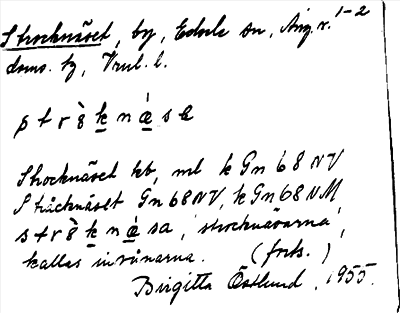 Strocknäset, by, Edsele sn, Ång. v. 1-2
doms. tg, Vml. l.
strö̀knǽsa
Strocknäset kb, ml k Gn 68 NV
Stricknäset Gn 68 NV, k Gn 68 NM
strö̀knǽsa, strocknäsarna,
kallas invånarna. (forts.)
Birgitta Östlund, 1955.